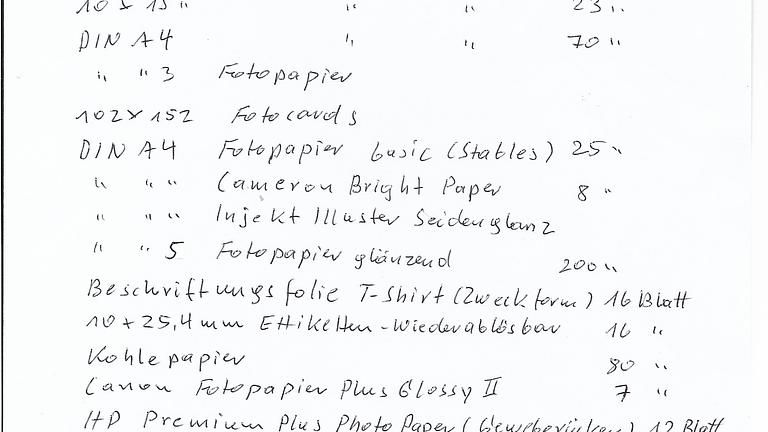 10 x 15 " " " 23 "
DIN A4 " " 70 "
" " 3 Fotopapier
102x152 Fotocards
DIN A4 Fotopapier basic (Stables) 25 "
" " " Cameron Bright Paper 8 "
" " " Injekt Illuster Seidenglanz
" " 5 Fotopapier glänzend 200 "
Beschriftungsfolie T-Shirt (Zweckform) 16 Blatt
10 x 25,4 mm Ettiketten-Wiederablösbar 16 "
Kohlepapier 80 "
Canon Fotopapier Plus Glossy II 7 "
HP Premium Plus Photo Paper (Geweberücken) 12 Blatt